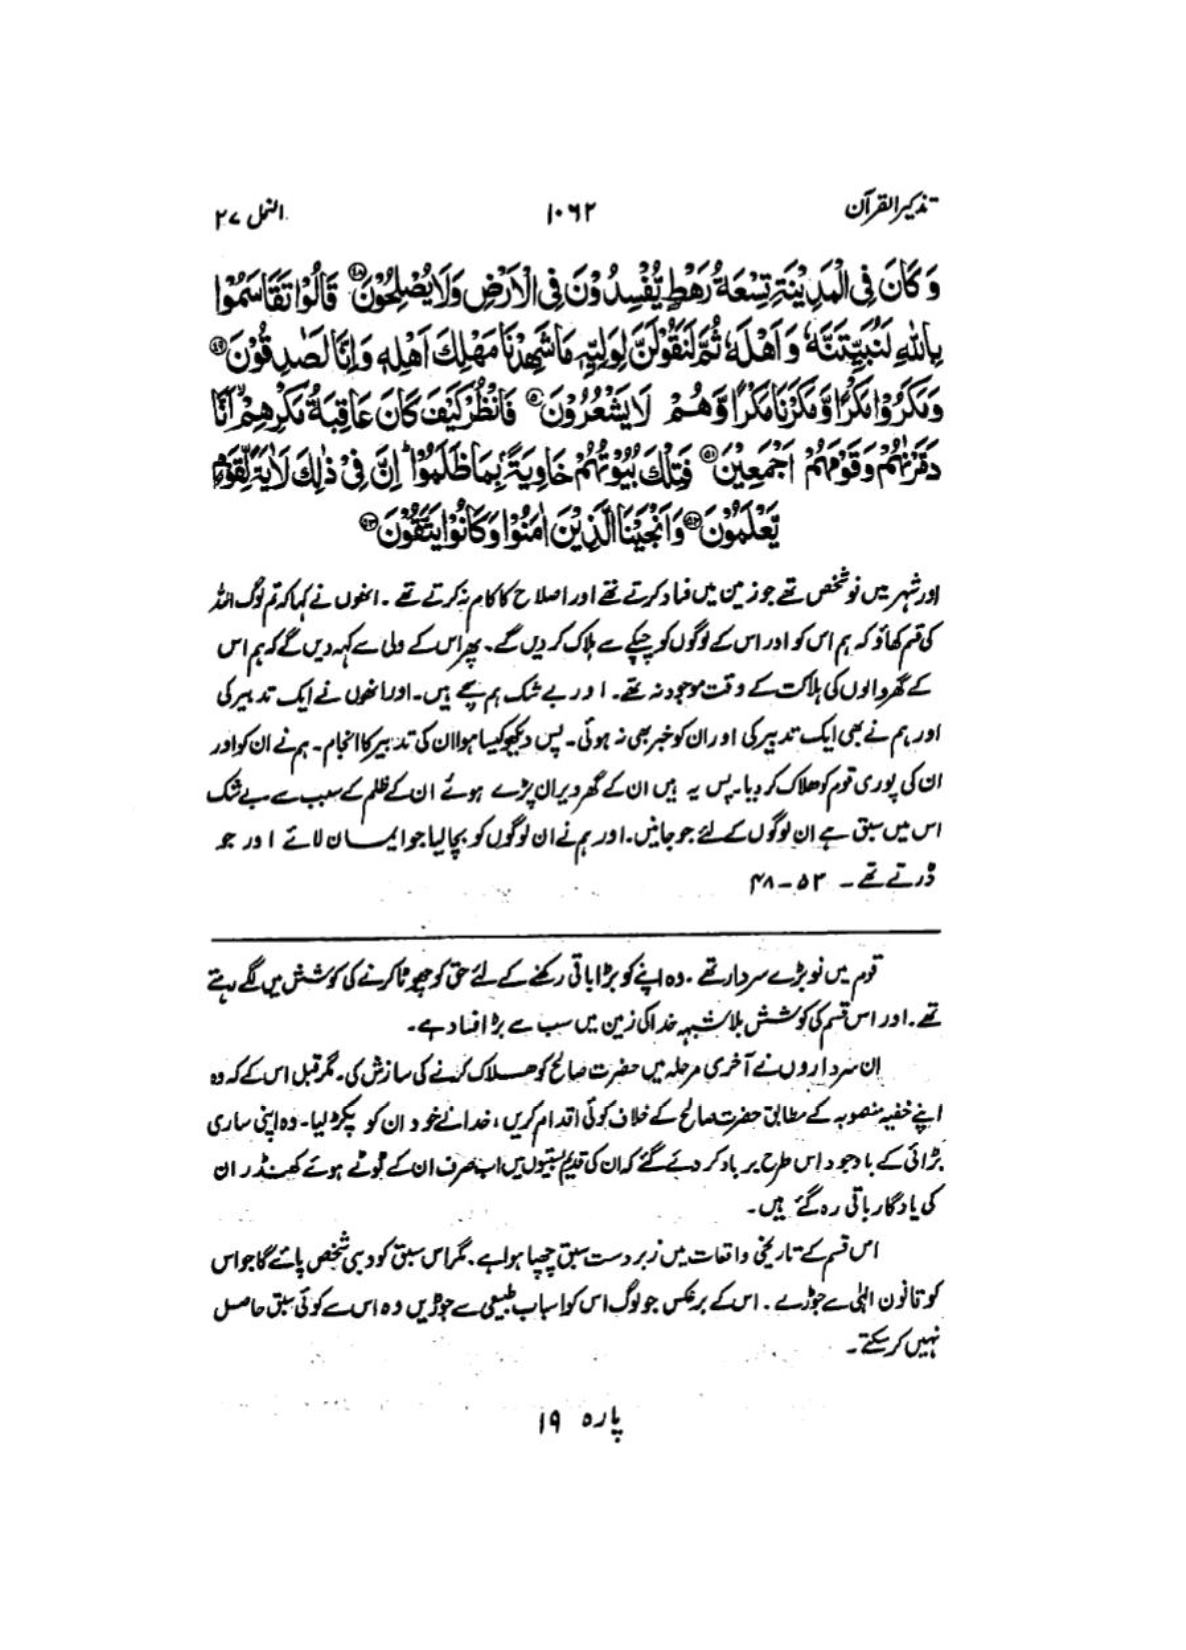 تذکیر القرآن ۱۰۶۲ النمل ۲۷
وَكَانَ فِى الْمَدِيْنَةِ تِسْعَةُ رَهْطٍ يُّفْسِدُوْنَ فِى الْاَرْضِ وَلَا يُصْلِحُوْنَ ﴿۴۸﴾ قَالُوْا تَقَاسَمُوْا
بِاللّٰهِ لَنُبَيِّتَنَّهٗ وَاَهْلَهٗ ثُمَّ لَنَقُوْلَنَّ لِوَلِيِّهٖ مَا شَهِدْنَا مَهْلِكَ اَهْلِهٖ وَاِنَّا لَصٰدِقُوْنَ ﴿۴۹﴾
وَمَكَرُوْا مَكْرًا وَّمَكَرْنَا مَكْرًا وَّهُمْ لَا يَشْعُرُوْنَ ﴿۵۰﴾ فَانْظُرْ كَيْفَ كَانَ عَاقِبَةُ مَكْرِهِمْ ۙ اَنَّا
دَمَّرْنٰهُمْ وَقَوْمَهُمْ اَجْمَعِيْنَ ﴿۵۱﴾ فَتِلْكَ بُيُوْتُهُمْ خَاوِيَةً ۢ بِمَا ظَلَمُوْا ؕ اِنَّ فِىْ ذٰلِكَ لَاٰيَةً لِّقَوْمٍ
يَّعْلَمُوْنَ ﴿۵۲﴾ وَاَنْجَيْنَا الَّذِيْنَ اٰمَنُوْا وَكَانُوْا يَتَّقُوْنَ ﴿۵۳﴾
اور شہر میں نو شخص تھے جو زمین میں فساد کرتے تھے اور اصلاح کا کام نہ کرتے تھے ۔ انھوں نے کہا کہ تم لوگ اللہ
کی قسم کھاؤ کہ ہم اس کو اور اس کے لوگوں کو چپکے سے ہلاک کر دیں گے ۔ پھر اس کے ولی سے کہہ دیں گے کہ ہم اس
کے گھر والوں کی ہلاکت کے وقت موجود نہ تھے ۔ اور بے شک ہم سچے ہیں ۔ اور انھوں نے ایک تدبیر کی
اور ہم نے بھی ایک تدبیر کی اور ان کو خبر بھی نہ ہوئی ۔ پس دیکھو کیسا ہوا ان کی تدبیر کا انجام ۔ ہم نے ان کو اور
ان کی پوری قوم کو ھلاک کر دیا ۔ پس یہ ہیں ان کے گھر ویران پڑے ہوئے ان کے ظلم کے سبب سے بے شک
اس میں سبق ہے ان لوگوں کے لئے جو جانیں ۔ اور ہم نے ان لوگوں کو بچا لیا جو ایمان لائے اور جو
ڈرتے تھے ۔ ۵۳ - ۴۸
قوم میں نو بڑے سردار تھے ۔ وہ اپنے کو بڑا باقی رکھنے کے لئے حق کو چھوٹا کرنے کی کوشش میں لگے رہتے
تھے ۔ اور اس قسم کی کوشش بلاشبہہ خدا کی زمین میں سب سے بڑا فساد ہے ۔
ان سرداروں نے آخری مرحلہ میں حضرت صالح کو ھلاک کرنے کی سازش کی ۔ مگر قبل اس کے کہ وہ
اپنے خفیہ منصوبہ کے مطابق حضرت صالح کے خلاف کوئی اقدام کریں ، خدا نے خود ان کو پکڑ لیا ۔ وہ اپنی ساری
بڑائی کے باوجود اس طرح برباد کر دئے گئے کہ ان کی قدیم بستیوں میں اب صرف ان کے ٹوٹے ہوئے کھنڈر ان
کی یادگار باقی رہ گئے ہیں ۔
اس قسم کے تاریخی واقعات میں زبردست سبق چھپا ہوا ہے ۔ مگر اس سبق کو وہی شخص پائے گا جو اس
کو قانون الٰہی سے جوڑے ۔ اس کے برعکس جو لوگ اس کو اسباب طبیعی سے جوڑیں وہ اس سے کوئی سبق حاصل
نہیں کر سکتے ۔
پارہ ۱۹